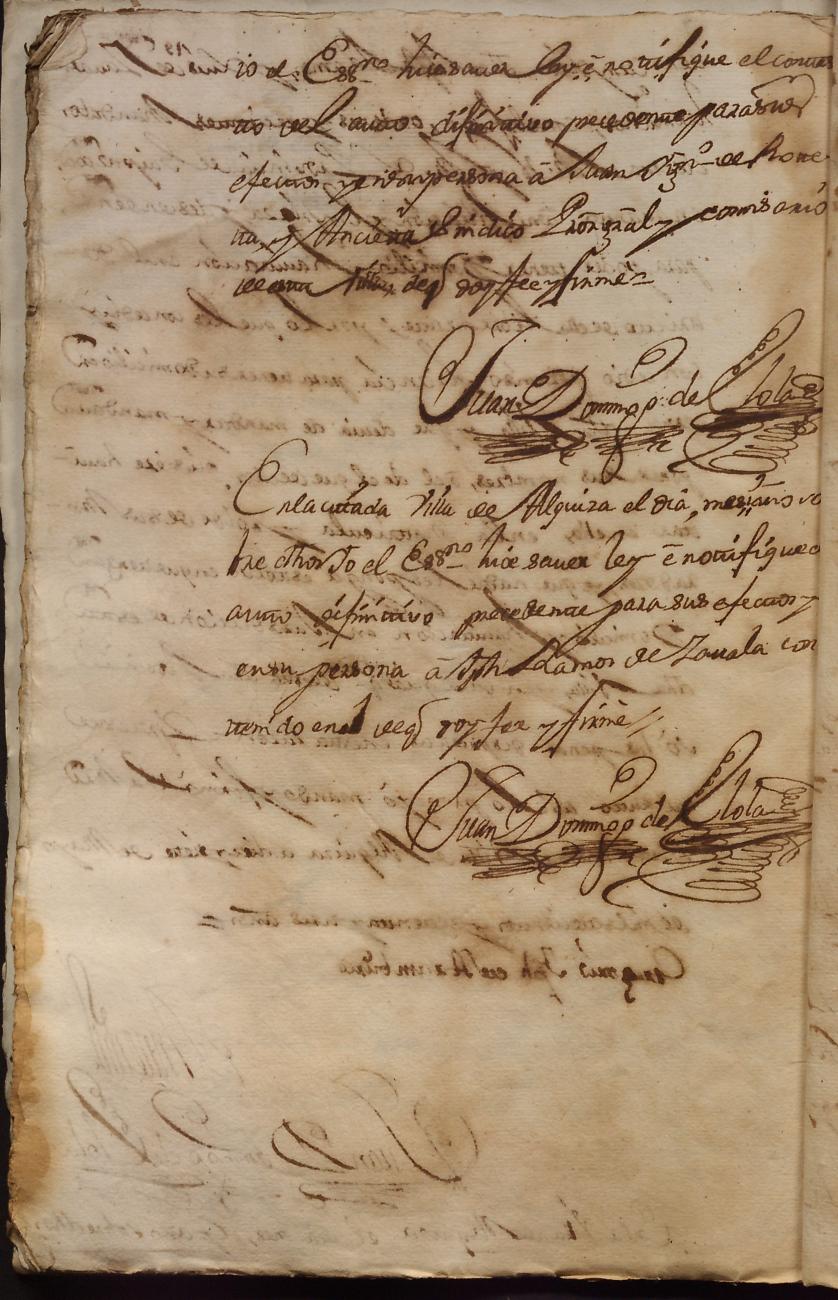 io el Essno hice saver ley é notifiqué el conte
to del auto difinitivo precedente para sus
efectos y en su persona á Juan de
ta y Síndico y
de esta Villa, de q doy fee y firmé
Juan Domingo de Elola
En la citada Villa de Alquiza el dia, mes y año so
bre dhos Yo el Essno hice saver ley é notifiqué
auto difinitivo precedente para sus efectos y
en su persona á Jph Ramos de Zavala con
tenido en el de q doy fee y firmé
Juan Domingo de Elola